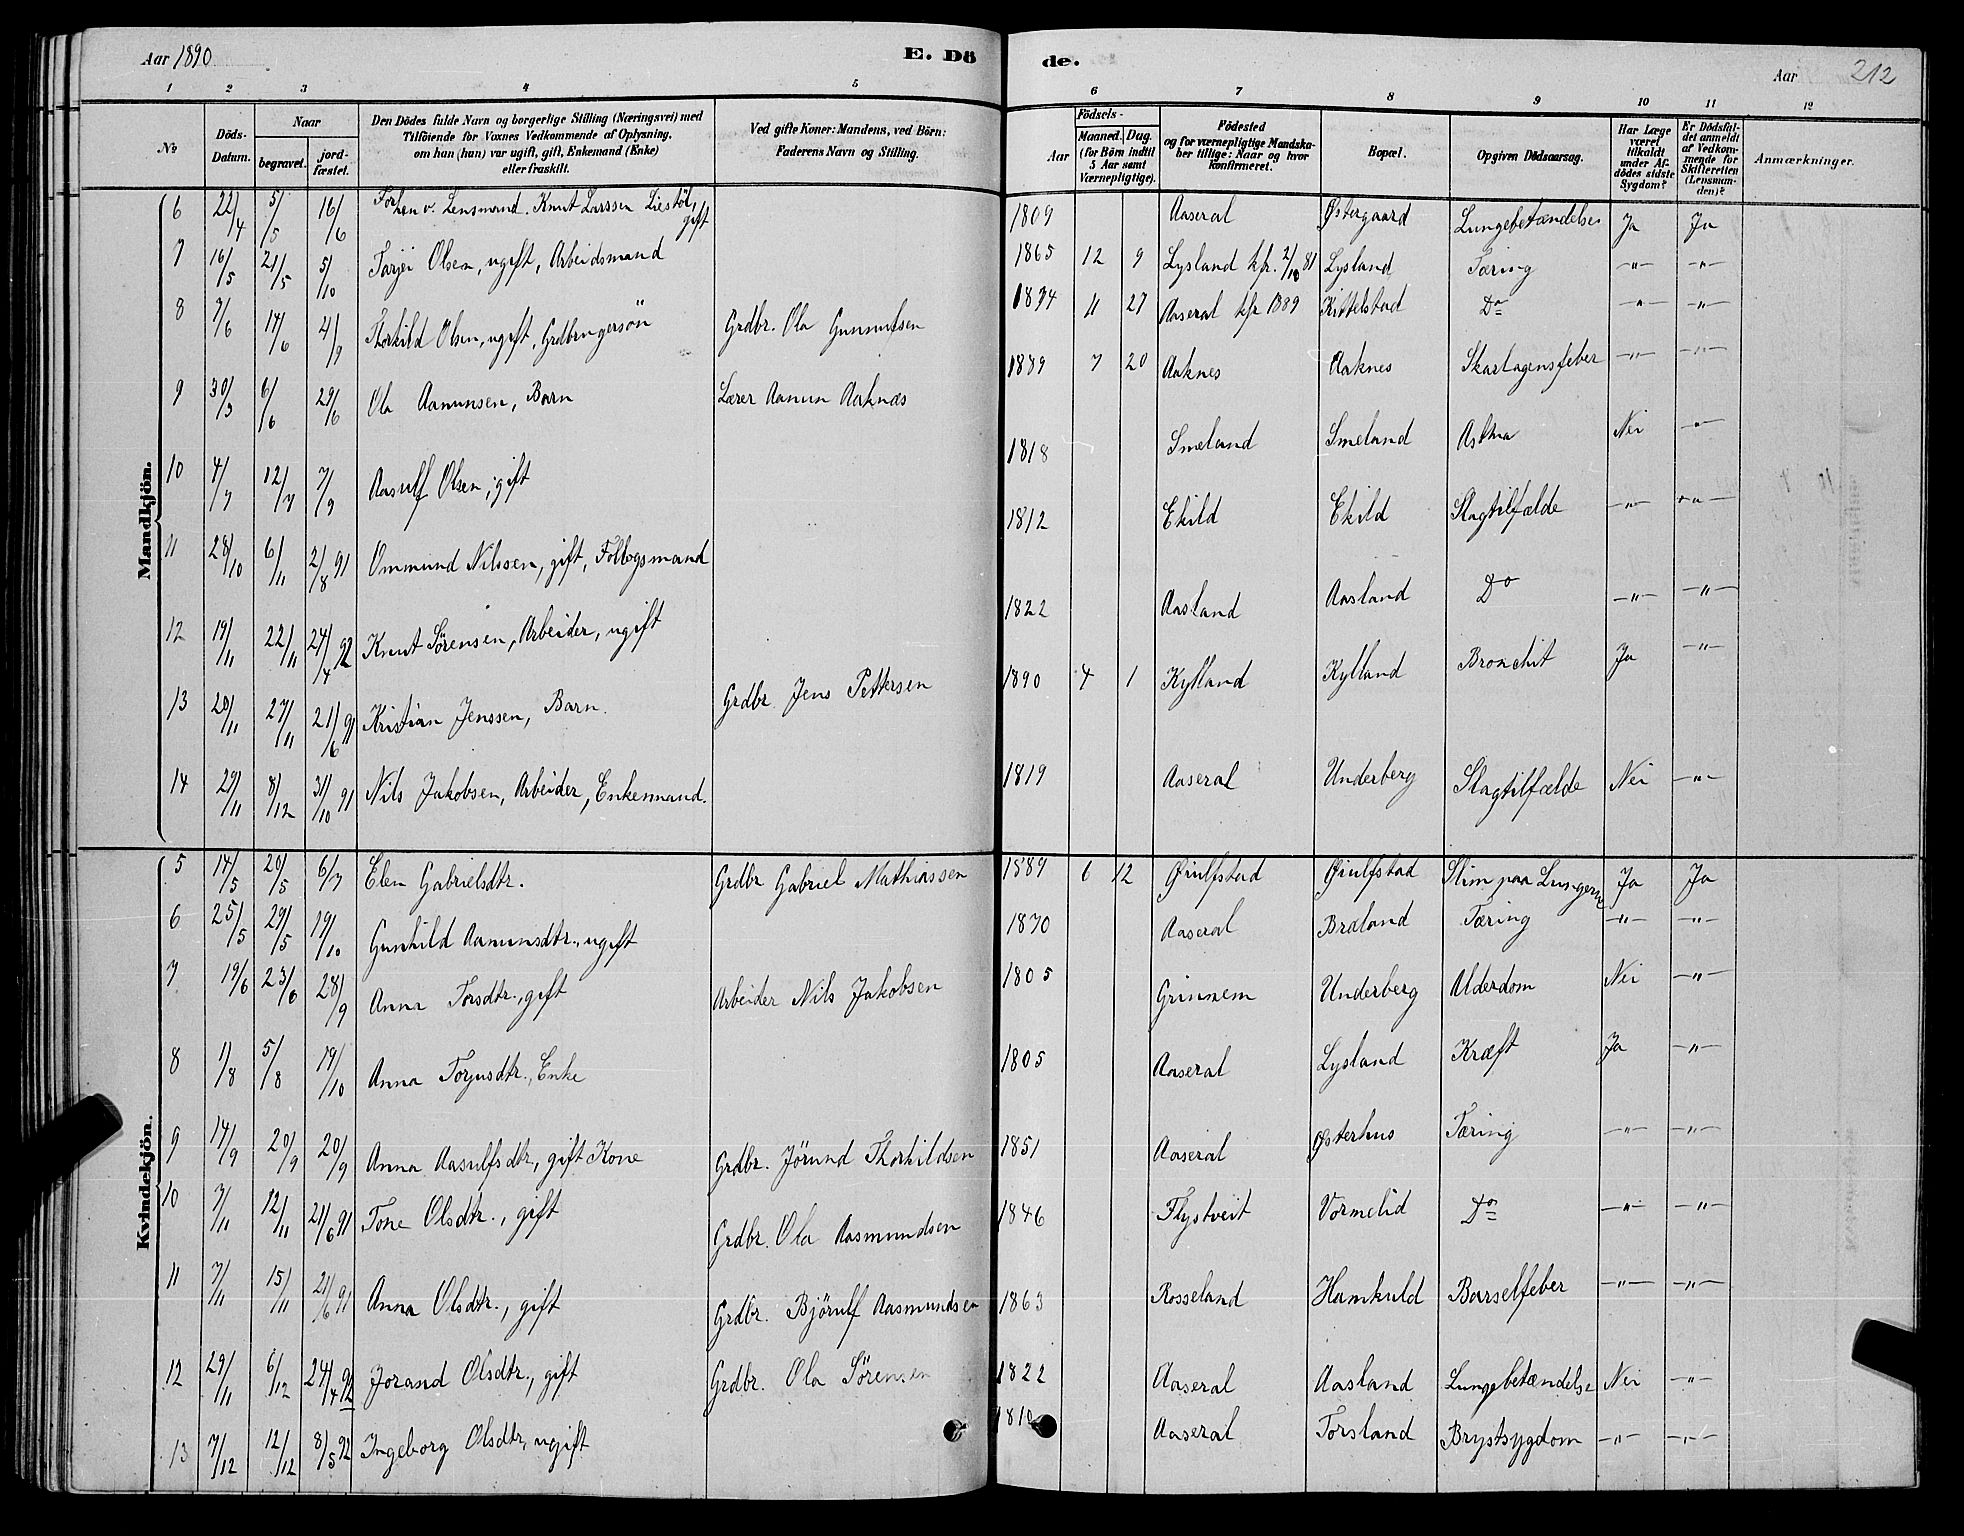 Aar 1890
E. Dö
de.
Aar
212
1 2 3 4 5 6 7 8 9 10 11 12
No
Döds-Datum.
Naar
begravet.
jord-fæstet.
Den Dödes fulde Navn og borgerlige Stilling (Næringsvei) med
Tilföiende for Voxnes Vedkommende af Oplysning,
om han (hun) var ugift, gift, Enkemand (Enke)
eller fraskilt.
Ved gifte Koner: Mandens, ved Börn:
Faderens Navn og Stilling.
Födsels-
Aar
Maaned.
Dag.
(for Börn indtil
5 Aar samt
Værnepligtige).
Födested
og for værnepligtige Mandska-
ber tillige: Naar og hvor
konfirmeret.
Bopæl.
Opgiven Dödsaarsag.
Har Læge
været
tilkaldt
under Af-
dödes sidste
Sygdom?
Er Dödsfal-
det anmeldt
af Vedkom-
mende for
Skifteretten
(Lensman-
den)?
Anmærkninger.
Mandkjön.
6 22/4 5/5 16/6 Forhenv. Lensmand. Knut Larssen Liestöl, gift 1809 Aaseral Østergaard Lungebetændelse Ja Ja
7 16/5 21/5 5/10 Tarjei Olsen, ugift, Arbeidsmand 1865 12 9 Lysland kfr. 2/10 81 Lysland Tæring -"- -"-
8 7/6 14/6 4/9 Thorkild Olsen, ugift, Grdbrugersön Grdbr. Ola Gunnufsen 1874 11 27 Aaseral kfr 1889 Kittelstad Do -"- -"-
9 30/3 6/6 29/6 Ola Aamunsen, Barn Lærer Aamun Aaknæs 1889 7 20 Aaknes Aaknes Skarlagensfeber -"- -"-
10 4/7 12/7 7/9 Aasulf Olsen, gift 1818 Smeland Smeland Astma Nei -"-
11 28/10 6/11 2/8 91 Ommund Nilssen, gift, Follogsmand 1812 Ekild Ekild Slagtilfælde -"- -"-
12 19/11 22/11 24/4 92 Knut Sörensen, Arbeider, ugift 1822 Aasland Aasland Do -"- -"-
13 20/11 27/11 21/6 91 Kristian Jenssen, Barn. Grdbr. Jens Pettersen 1890 4 1 Kylland Kylland Bronchit Ja -"-
14 29/11 8/12 31/10 91 Nils Jakobsen, Arbeider, Enkemand. 1819 Aaseral Underberg Slagtilfælde Nei -"-
Kvindekjön.
5 14/5 20/5 6/7 Elen Gabrielsdtr. Grdbr Gabriel Mathiassen 1889 6 12 Øiulfstad Øiulfstad Slim paa Lungerne Ja Ja
6 25/5 29/5 19/10 Gunhild Aamunsdtr., ugift 1870 Aaseral Braland Tæring -"- -"-
7 19/6 23/6 28/9 Anna Torsdtr., gift Arbeider Nils Jakobsen 1805 Grinnem Underberg Alderdom Nei -"-
8 1/8 5/8 19/10 Anna Torjusdtr., Enke 1805 Aaseral Lysland Kræft Ja -"-
9 14/9 20/9 20/9 Anna Aasulfsdtr, gift Kone Grdbr. Jörund Thorkildsen 1851 Aaseral Østerhus Tæring -"- -"-
10 7/11 12/11 21/6 91 Tone Olsdtr., gift Grdbr. Ola Aasmundsen 1846 Flystveit Vormelid Do -"- -"-
11 7/11 15/11 21/6 91 Anna Olsdtr., gift Grdbr. Björulf Aasmundsen 1863 Rosseland Hamkuld Barselfeber -"- -"-
12 29/11 6/12 24/4 92 Jorand Olsdtr., gift Grdbr. Ola Sörensen 1822 Aaseral Aasland Lungebetændelse Nei -"-
13 7/12 12/12 8/5 92 Ingeborg Olsdtr, ugift 1810 Aaseral Torsland Brystsygdom -"- -"-